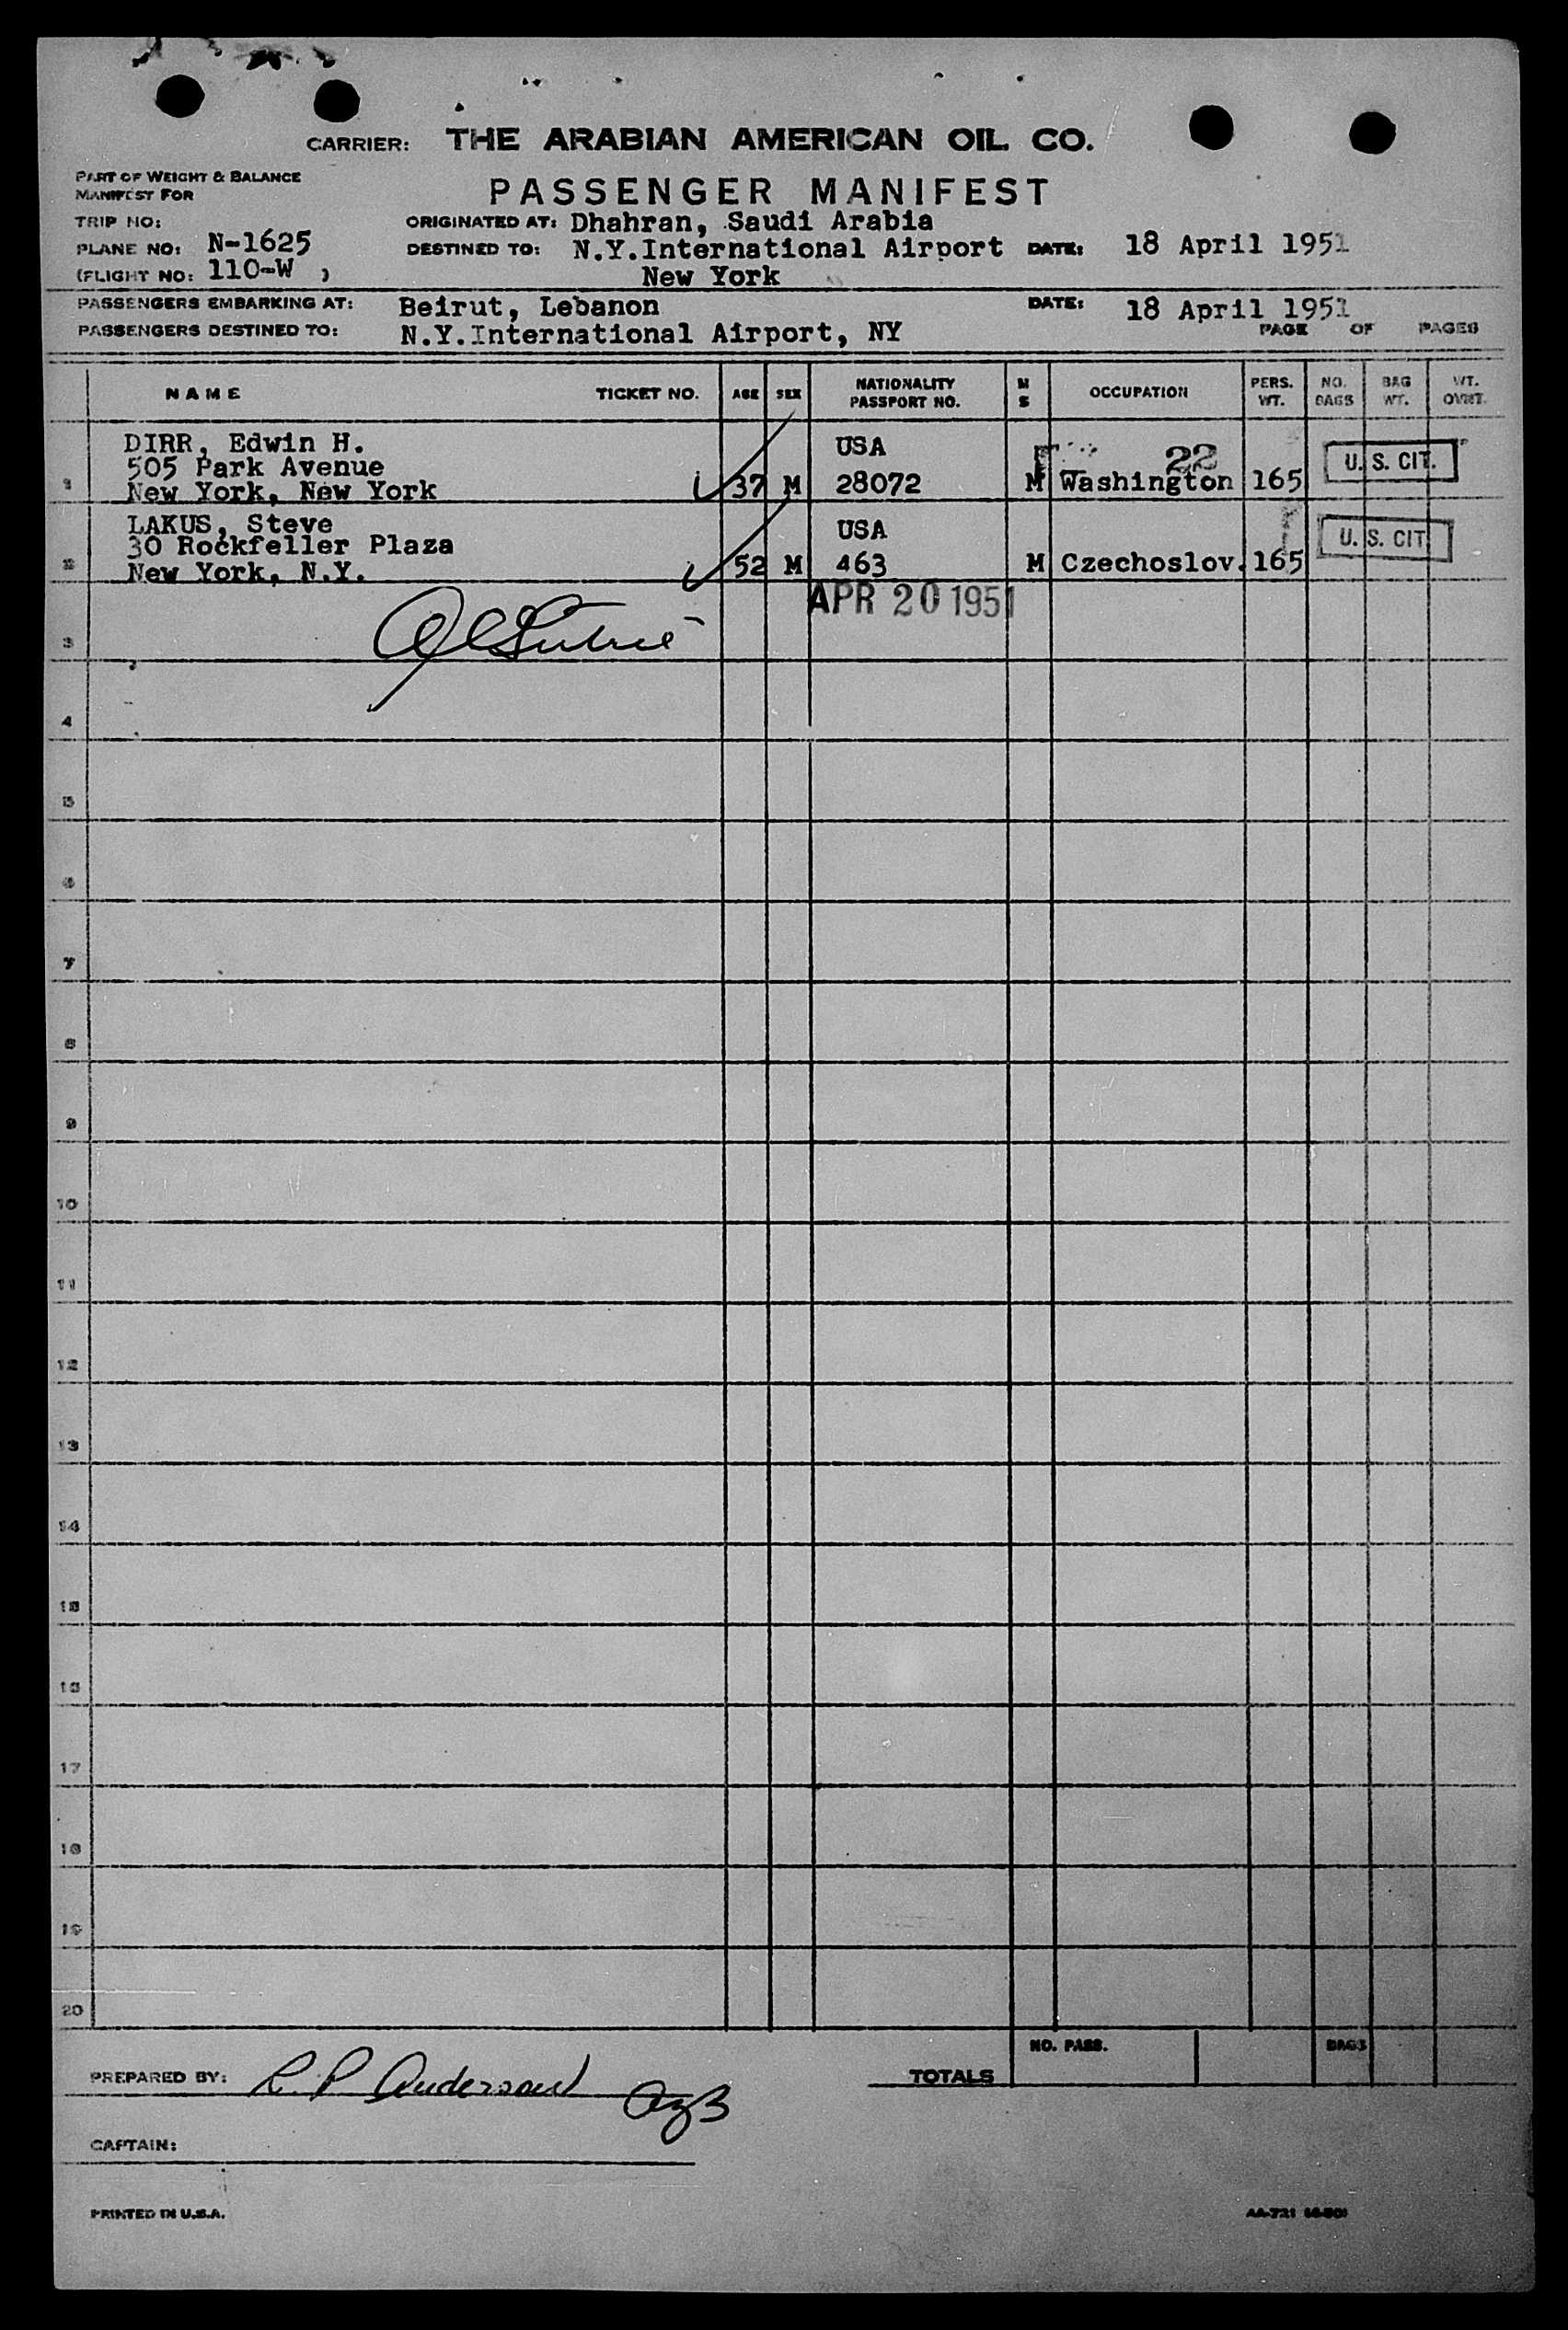 CARRIER: THE ARABIAN AMERICAN OIL CO.
PART OF WEIGHT & BALANCE
MANIFEST FOR
PASSENGER MANIFEST
TRIP NO:
ORIGINATED AT: Dhahran, Saudi Arabia
PLANE NO: N-1625
DESTINED TO: N.Y.International Airport DATE: 18 April 1951
(FLIGHT NO: 110-W )
New York
PASSENGERS EMBARKING AT: Beirut, Lebanon DATE: 18 April 1951
PASSENGERS DESTINED TO: N.Y.International Airport, NY
PAGE OF PAGES
NAME TICKET NO. AGE SEX NATIONALITY PASSPORT NO. M S OCCUPATION PERS. WT. NO. BAGS BAG WT. WT. OVWT.
DIRR, Edwin H. USA
505 Park Avenue 22 U.S. CIT.
1 New York, New York 37 M 28072 M Washington 165
LAKUS, Steve USA
30 Rockfeller Plaza U.S. CIT
2 New York, N.Y. 52 M 463 M Czechoslov. 165
APR 20 1951
3
4
5
6
7
8
9
10
11
12
13
14
15
16
17
18
19
20
NO. PASS. BAGS
PREPARED BY: R. P Anderson TOTALS
CAPTAIN:
PRINTED IN U.S.A. AA-721